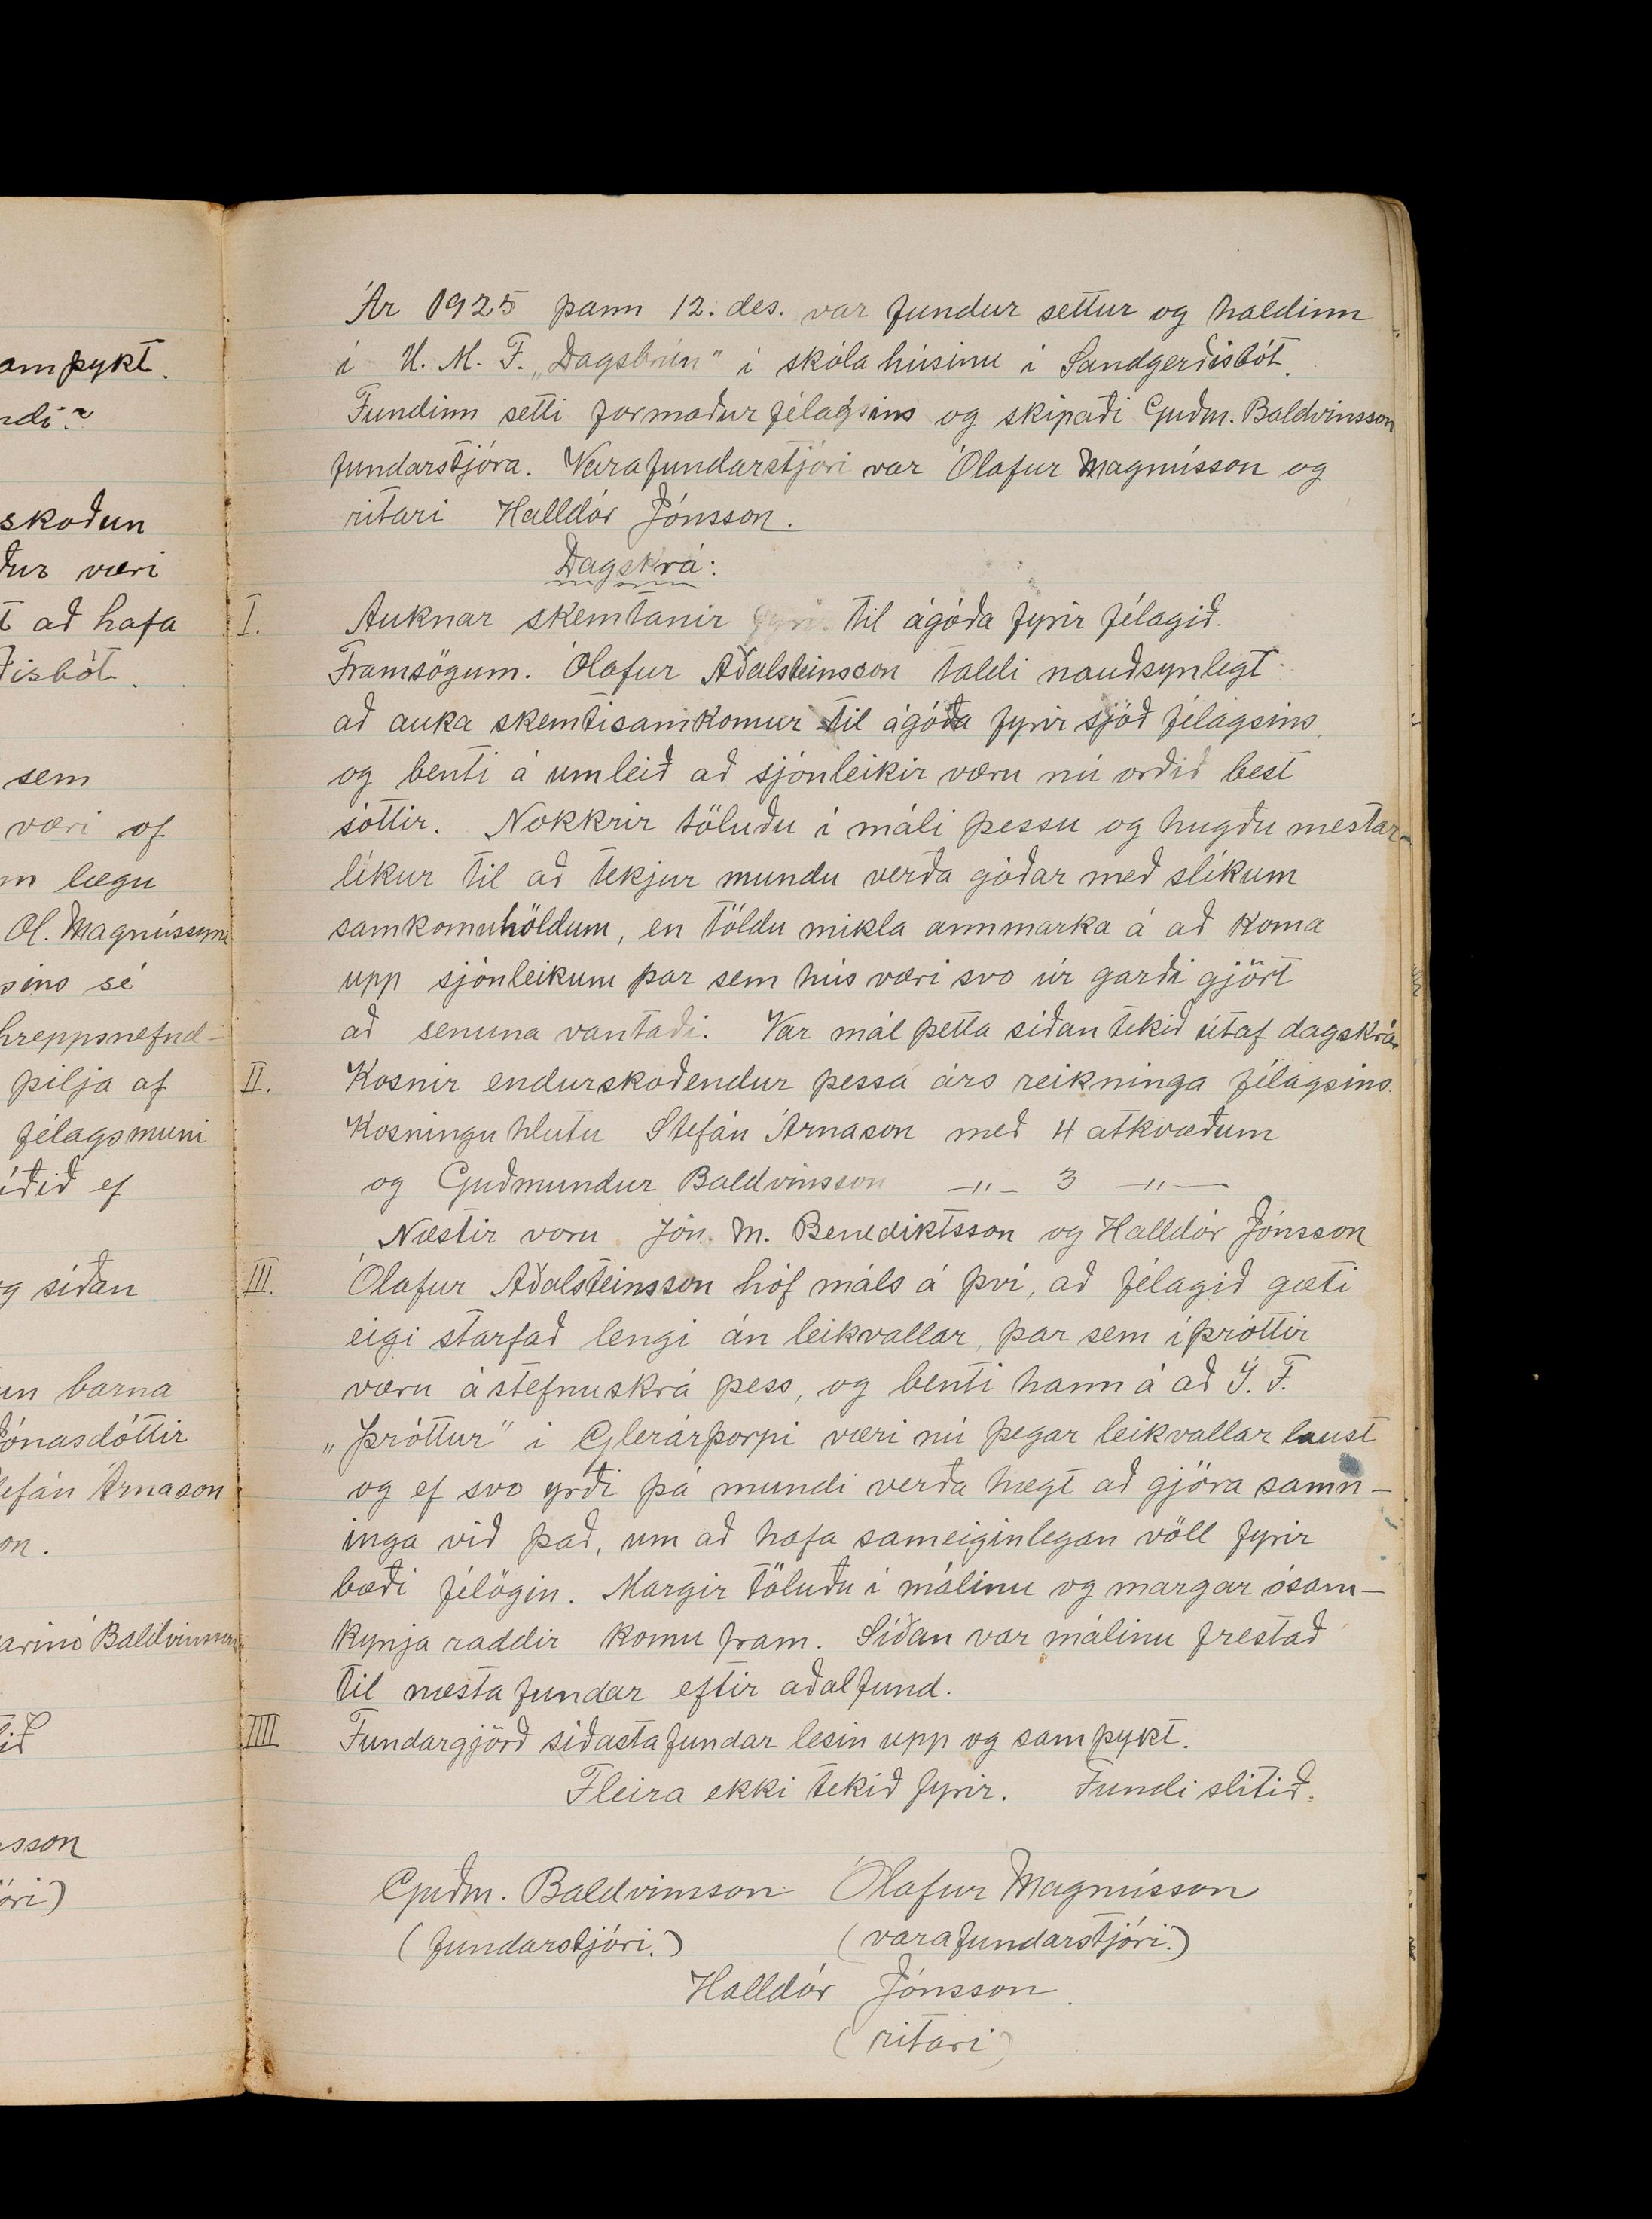 ampykt.
ndi?
skoðun
ður væri
t að hafa
disbót.
sem
væri of
m lægu
Ól. Magnússyni
sins sé
hreppsnefnd-
þilja af
félagsmuni
íðið ef
og síðan
un barna
Jónasdóttir
tefán Árnason
on.
arinó Baldvinsson
tið
sson
óri)
Ár 1925 þann 12. des. var fundur settur og haldinn
í U. M. F. „Dagsbrún" í skólahúsinu í Sandgerðisbót.
Fundinn setti formaður félagsins og skipaði Guðm. Baldvinsson
fundarstjóra. Varafundarstjóri var Ólafur Magnússon og
ritari Halldór Jónsson.
Dagskrá:
I. Auknar skemtanir fyrir til ágóða fyrir félagið.
Framsögum. Ólafur Aðalsteinsson taldi nauðsynlegt
að auka skemtisamkomur til ágóða fyrir sjóð félagsins,
og benti á umleið að sjónleikir væru nú orðið best
sóttir. Nokkrir töluðu í máli þessu og hugðu mestar
líkur til að tekjur mundu verða góðar með slíkum
samkomuhöldum, en töldu mikla annmarka á að koma
upp sjónleikum þar sem hús væri svo úr garði gjört
að senuna vantaði. Var mál þetta síðan tekið útaf dagskrá.
II. Kosnir endurskoðendur þessa árs reikninga félagsins.
Kosningu hlutu Stefán Árnason með 4 atkvæðum
og Guðmundur Baldvinsson —„— 3 —„—
Næstir voru Jón M. Benediktsson og Halldór Jónsson
III. Ólafur Aðalsteinsson hóf máls á því, að félagið gæti
eigi starfað lengi án leikvallar, þar sem íþróttir
væru á stefnuskrá þess, og benti hann á að Í. F.
„Þróttur" í Glerárþorpi væri nú þegar leikvallarlaust
og ef svo yrði þá mundi verða hægt að gjöra samn-
inga við það, um að hafa sameiginlegan völl fyrir
bæði félögin. Margir töluðu í málinu og margar ósam-
kynja raddir komu fram. Síðan var málinu frestað
til næsta fundar eftir aðalfund.
IIII Fundargjörð síðasta fundar lesin upp og samþykt.
Fleira ekki tekið fyrir. Fundi slitið.
Guðm. Baldvinsson Ólafur Magnússon
(fundarstjóri.) (varafundarstjóri.)
Halldór Jónsson.
(ritari)